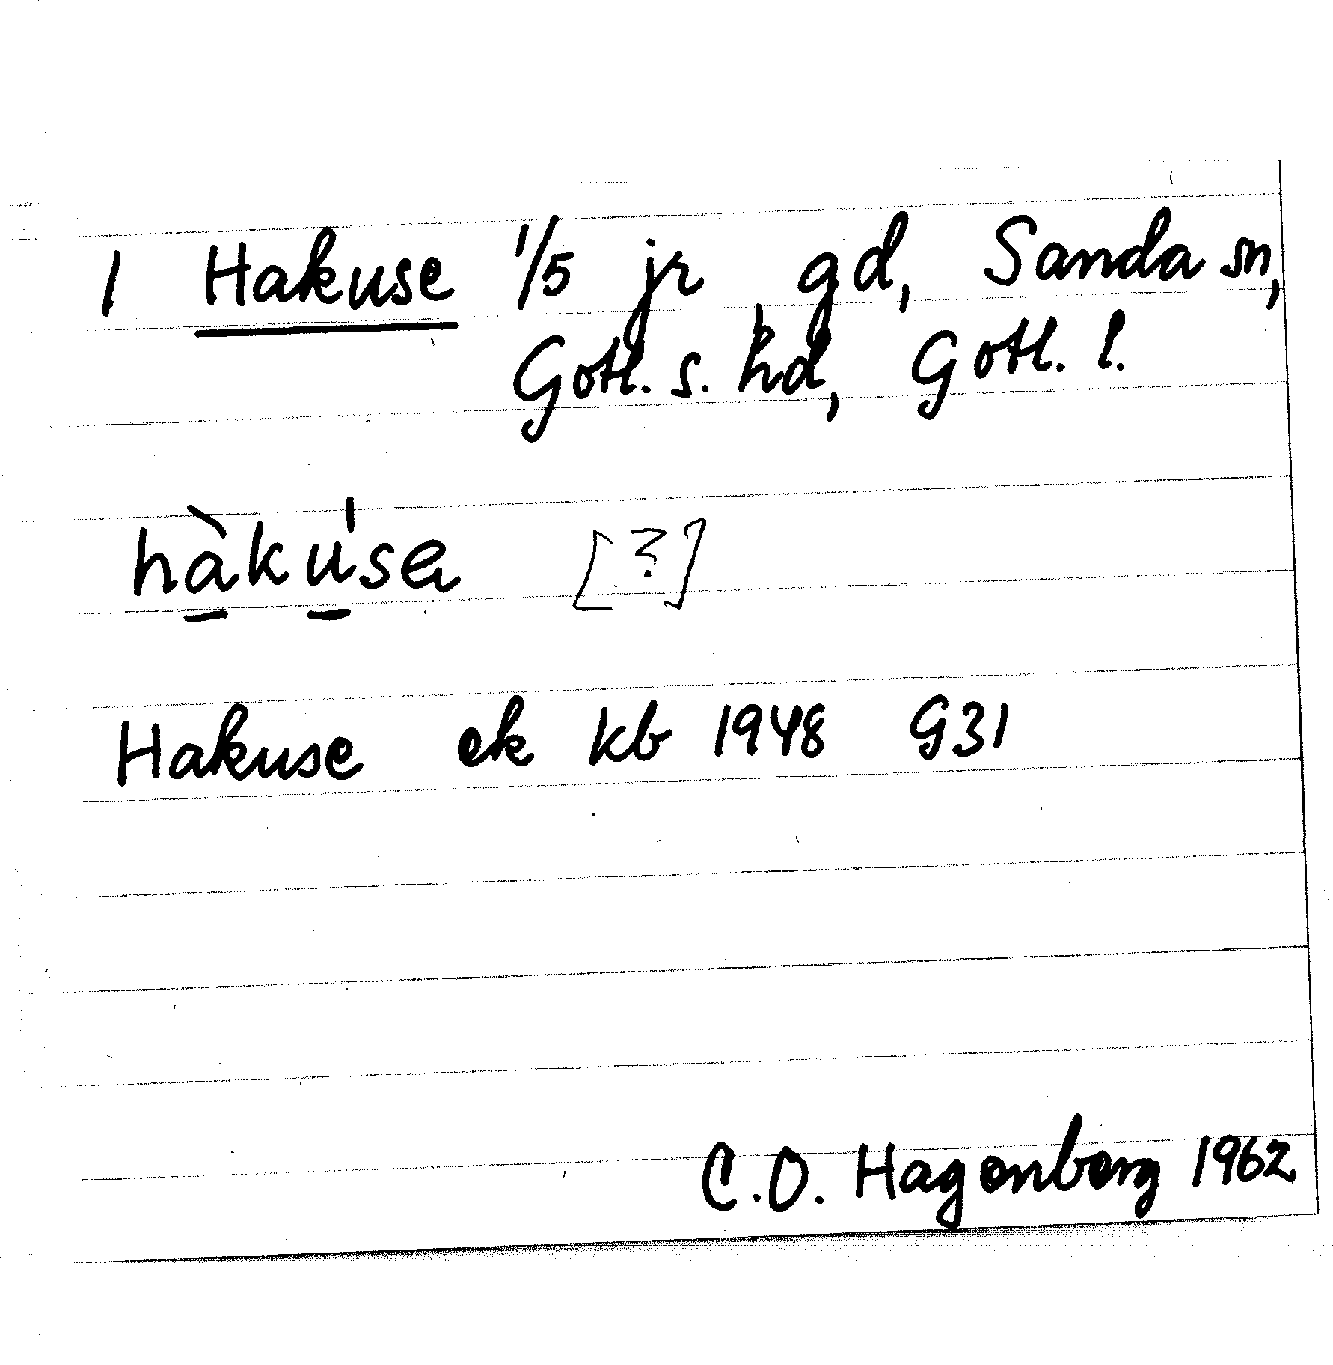 1 Hakuse 1/5 jr gd, Sanda sn,
Gotl. s. hd, Gotl. l.
hàku'sa [?]
Hakuse ek kb 1948 G31
C.O. Hagenberg 1962